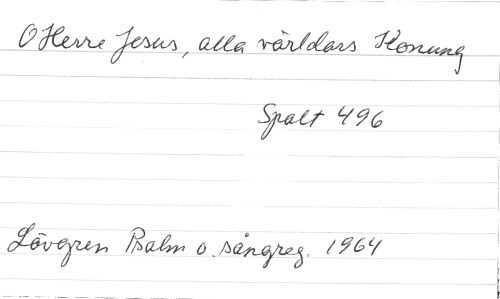 O Herre Jesus, alla världars Konung
Spalt 496
Lövgren Psalm o. sångreg. 1964